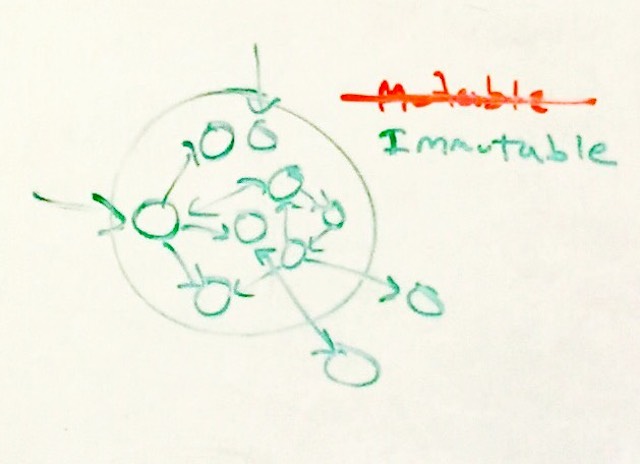 Mutable
Immutable